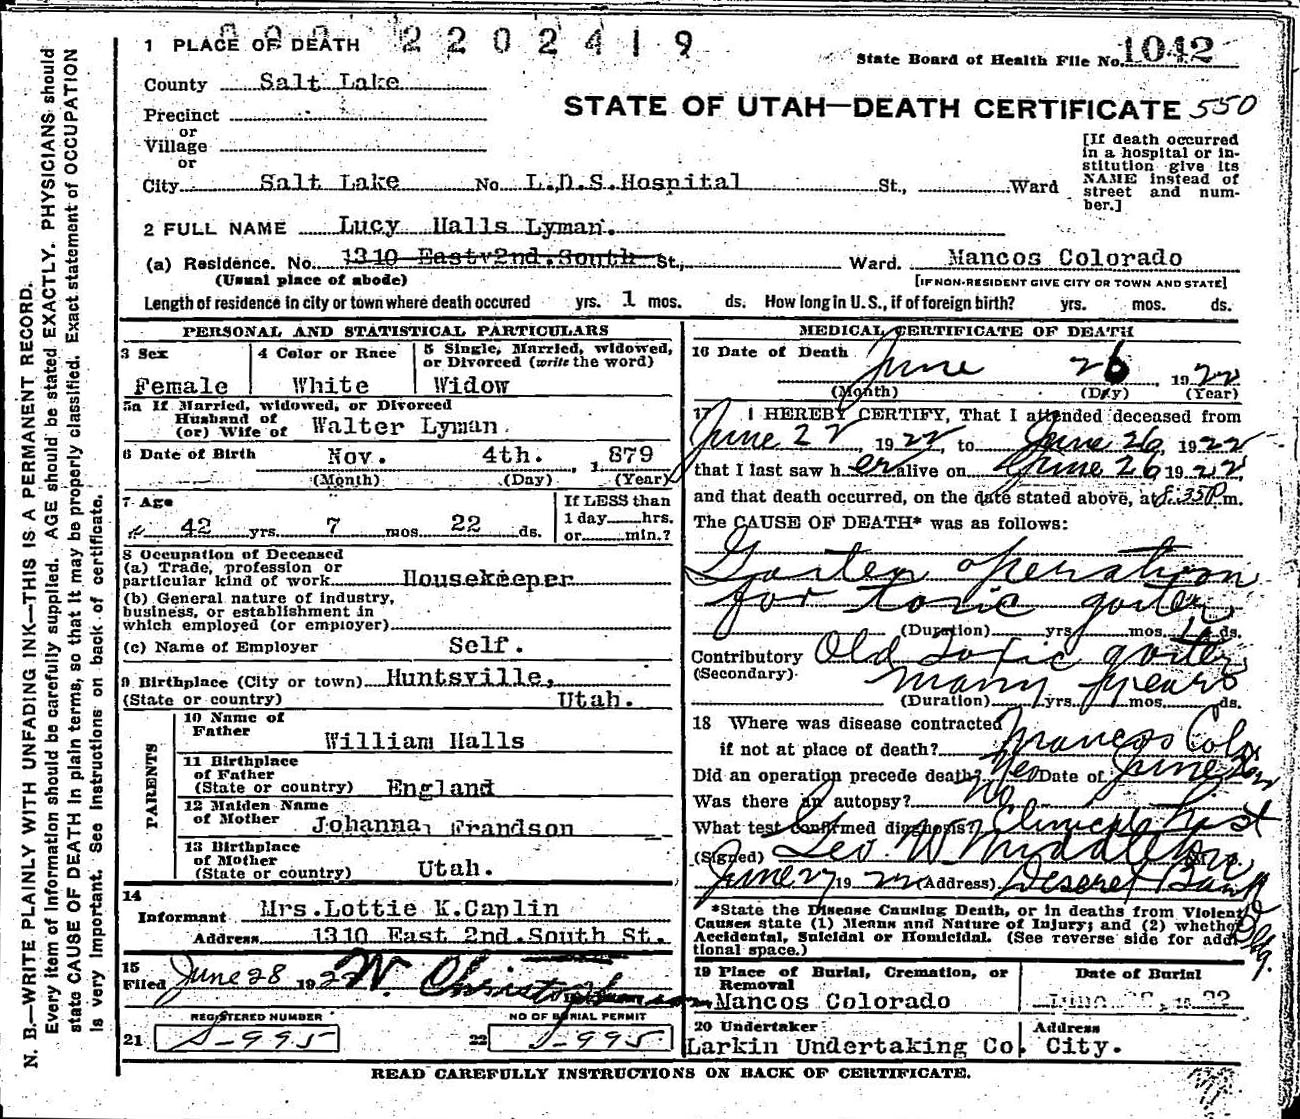 1 PLACE OF DEATH 2202419
State Board of Health File No. 1042
County Salt Lake
STATE OF UTAH—DEATH CERTIFICATE 550
Precinct
or
Village
or
City Salt Lake No. L.D.S. Hospital St., Ward
[If death occurred
in a hospital or in-
stitution give its
NAME instead of
street and num-
ber.]
2 FULL NAME Lucy Halls Lyman.
(a) Residence. No. 1310 East 2nd. South St., Ward. Mancos Colorado
(Usual place of abode) [IF NON-RESIDENT GIVE CITY OR TOWN AND STATE]
Length of residence in city or town where death occured yrs. 1 mos. ds. How long in U. S., if of foreign birth? yrs. mos. ds.
PERSONAL AND STATISTICAL PARTICULARS
3 Sex
Female
4 Color or Race
White
5 Single, Married, widowed,
or Divorced (write the word)
Widow
5a If Married, widowed, or Divorced
Husband of
(or) Wife of Walter Lyman.
6 Date of Birth Nov. 4th. , 1879
(Month) (Day) (Year)
7 Age
42 yrs. 7 mos 22 ds.
If LESS than
1 day hrs.
or min.?
8 Occupation of Deceased
(a) Trade, profession or
particular kind of work Housekeeper
(b) General nature of industry,
business, or establishment in
which employed (or employer)
(c) Name of Employer Self.
9 Birthplace (City or town) Huntsville,
(State or country) Utah.
PARENTS
10 Name of
Father William Halls
11 Birthplace
of Father
(State or country) England
12 Maiden Name
of Mother Johanna Frandson
13 Birthplace
of Mother
(State or country) Utah.
14
Informant Mrs. Lottie K. Caplin
Address 1310 East 2nd. South St.
15
Filed June 28 1922 W. Christopherson
REGISTERED NUMBER
21 S-995
NO OF BURIAL PERMIT
22 S-995
MEDICAL CERTIFICATE OF DEATH
16 Date of Death June 26, 1922
(Month) (Day) (Year)
17 I HEREBY CERTIFY, That I attended deceased from
June 22, 1922, to June 26, 1922
that I last saw her alive on June 26 1922,
and that death occurred, on the date stated above, at 8:35 P.m.
The CAUSE OF DEATH* was as follows:
Goiter operation
for toxic goiter
(Duration) yrs. mos. ds.
Contributory Old toxic goiter
(Secondary) many years
(Duration) yrs. mos. ds.
18 Where was disease contracted
if not at place of death? Mancos Colo
Did an operation precede death? Yes Date of June
Was there an autopsy? No
What test confirmed diagnosis? Clinical Test
(Signed) Geo. W Middleton
June 27 1922 (Address) Deseret Bank Bldg.
*State the Disease Causing Death, or in deaths from Violent
Causes state (1) Means and Nature of Injury; and (2) whether
Accidental, Suicidal or Homicidal. (See reverse side for addi
tional space.)
19 Place of Burial, Cremation, or
Removal
Mancos Colorado
Date of Burial
20 Undertaker
Larkin Undertaking Co.
Address
City.
READ CAREFULLY INSTRUCTIONS ON BACK OF CERTIFICATE.
N. B.—WRITE PLAINLY WITH UNFADING INK—THIS IS A PERMANENT RECORD.
Every item of information should be carefully supplied. AGE should be stated EXACTLY. PHYSICIANS should
state CAUSE OF DEATH in plain terms, so that it may be properly classified. Exact statement of OCCUPATION
is very important. See instructions on back of certificate.